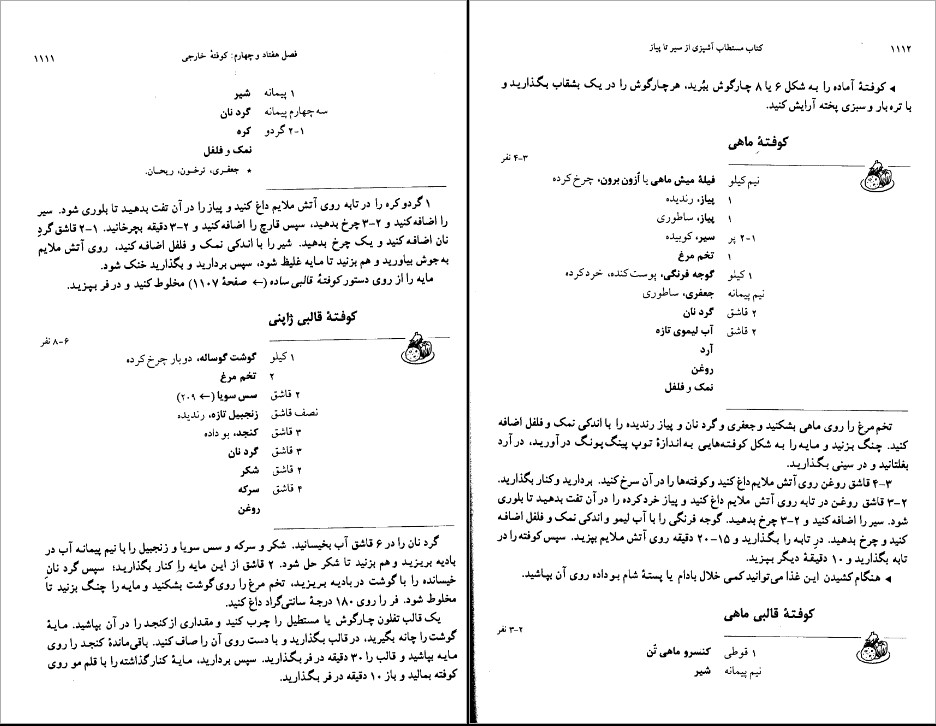 فصل هفتاد و چهارم: کوفتهٔ خارجی ۱۱۱۱
۱ پیمانه شیر
سه چهارم پیمانه گرد نان
۱-۲ گردو کره
نمک و فلفل
* جعفری، ترخون، ریحان.
۱ گردو کره را در تابه روی آتش ملایم داغ کنید و پیاز را در آن تفت بدهید تا بلوری شود. سیر
را اضافه کنید و ۲-۳ چرخ بدهید، سپس قارچ را اضافه کنید و ۲-۳ دقیقه بچرخانید. ۱-۲ قاشق گردِ
نان اضافه کنید و یک چرخ بدهید. شیر را با اندکی نمک و فلفل اضافه کنید، روی آتش ملایم
به جوش بیاورید و هم بزنید تا مایه غلیظ شود، سپس بردارید و بگذارید خنک شود.
مایه را از روی دستور کوفتهٔ قالبی ساده (← صفحهٔ ۱۱۰۷) مخلوط کنید و در فر بپزید.
کوفتهٔ قالبی ژاپنی
۶-۸ نفر
۱ کیلو گوشت گوساله، دو بار چرخ کرده
۲ تخم مرغ
۲ قاشق سس سویا (← ۲۰۹)
نصف قاشق زنجبیل تازه، رندیده
۳ قاشق کنجد، بو داده
۳ قاشق گرد نان
۲ قاشق شکر
۴ قاشق سرکه
روغن
گرد نان را در ۶ قاشق آب بخیسانید. شکر و سرکه و سس سویا و زنجبیل را با نیم پیمانه آب در
بادیه بریزید و هم بزنید تا شکر حل شود. ۲ قاشق از این مایه را کنار بگذارید؛ سپس گرد نان
خیسانده را با گوشت در بادیه بریزید، تخم مرغ را روی گوشت بشکنید و مایه را چنگ بزنید تا
مخلوط شود. فر را روی ۱۸۰ درجهٔ سانتی‌گراد داغ کنید.
یک قالب تفلون چارگوش یا مستطیل را چرب کنید و مقداری از کنجد را در آن بپاشید. مایهٔ
گوشت را چانه بگیرید، در قالب بگذارید و با دست روی آن را صاف کنید. باقی‌ماندهٔ کنجد را روی
مایه بپاشید و قالب را ۳۰ دقیقه در فر بگذارید. سپس بردارید، مایهٔ کنار گذاشته را با قلم مو روی
کوفته بمالید و باز ۱۰ دقیقه در فر بگذارید.
۱۱۱۲ کتاب مستطاب آشپزی از سیر تا پیاز
◂ کوفتهٔ آماده را به شکل ۶ یا ۸ چارگوش ببُرید، هر چارگوش را در یک بشقاب بگذارید و
با تره‌بار و سبزی پخته آرایش کنید.
کوفتهٔ ماهی
۳-۴ نفر
نیم کیلو فیلهٔ میش ماهی یا اُزون برون، چرخ کرده
۱ پیاز، رندیده
۱ پیاز، ساطوری
۱-۲ پر سیر، کوبیده
۱ تخم مرغ
۱ کیلو گوجه فرنگی، پوست‌کنده، خرد کرده
نیم پیمانه جعفری، ساطوری
۲ قاشق گرد نان
۲ قاشق آب لیموی تازه
آرد
روغن
نمک و فلفل
تخم مرغ را روی ماهی بشکنید و جعفری و گرد نان و پیاز رندیده را با اندکی نمک و فلفل اضافه
کنید. چنگ بزنید و مایه را به شکل کوفته‌هایی به اندازهٔ توپ پینگ‌پونگ در آورید، در آرد
بغلتانید و در سینی بگذارید.
۳-۴ قاشق روغن روی آتش ملایم داغ کنید و کوفته‌ها را در آن سرخ کنید. بردارید و کنار بگذارید.
۲-۳ قاشق روغن در تابه روی آتش ملایم داغ کنید و پیاز خرد کرده را در آن تفت بدهید تا بلوری
شود. سیر را اضافه کنید و ۲-۳ چرخ بدهید. گوجه فرنگی را با آب لیمو و اندکی نمک و فلفل اضافه
کنید و چرخ بدهید. درِ تابه را بگذارید و ۱۵-۲۰ دقیقه روی آتش ملایم بپزید. سپس کوفته را در
تابه بگذارید و ۱۰ دقیقهٔ دیگر بپزید.
◂ هنگام کشیدن این غذا می‌توانید کمی خلال بادام یا پستهٔ شام بو داده روی آن بپاشید.
کوفتهٔ قالبی ماهی
۲-۳ نفر
۱ قوطی کنسرو ماهی تُن
نیم پیمانه شیر